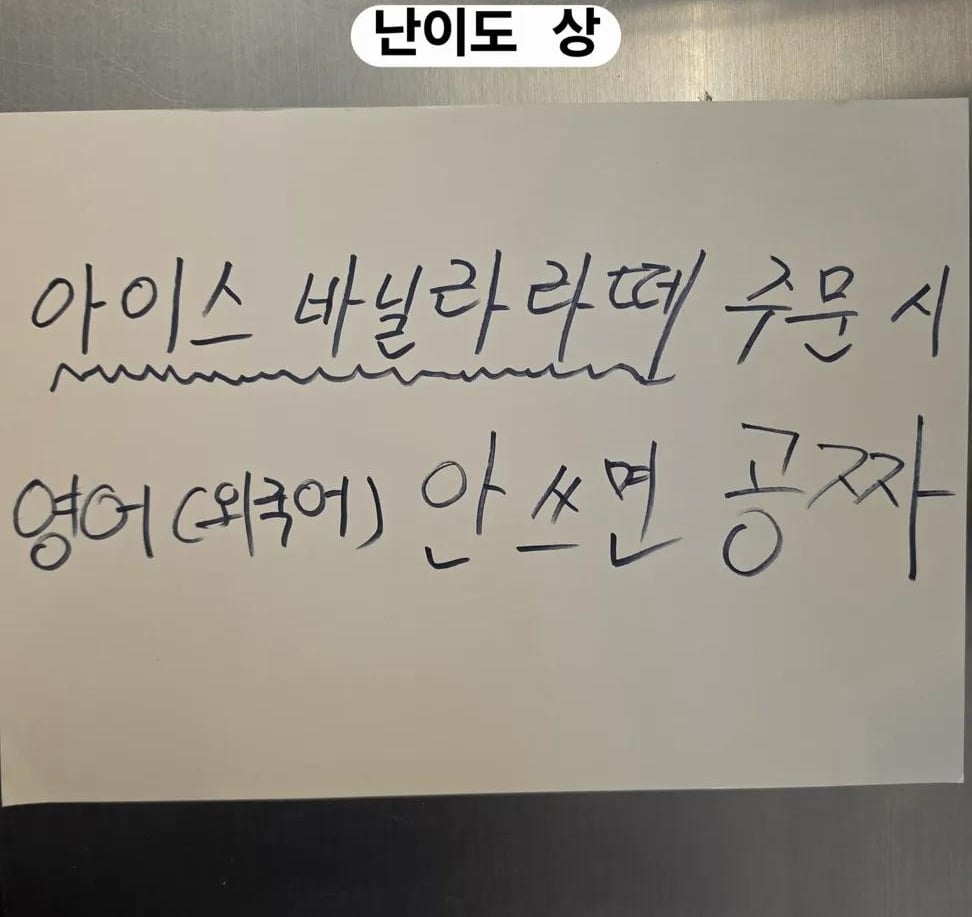 난이도 상
아이스 바닐라 라떼 주문 시
영어(외국어) 안 쓰면 공짜